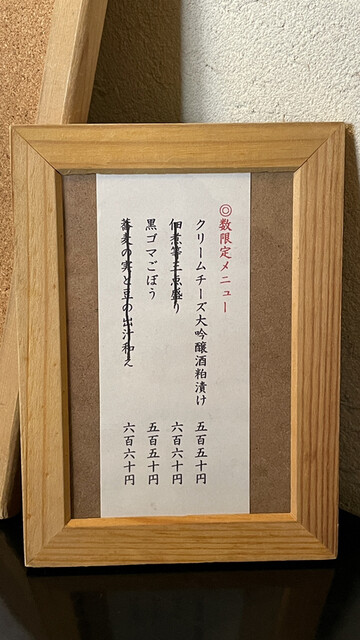 ◎数限定メニュー
クリームチーズ大吟醸酒粕漬け 五百五十円
佃煮等三点盛り 六百六十円
黒ゴマごぼう 五百五十円
蕎麦の実と豆の出汁和え 六百六十円